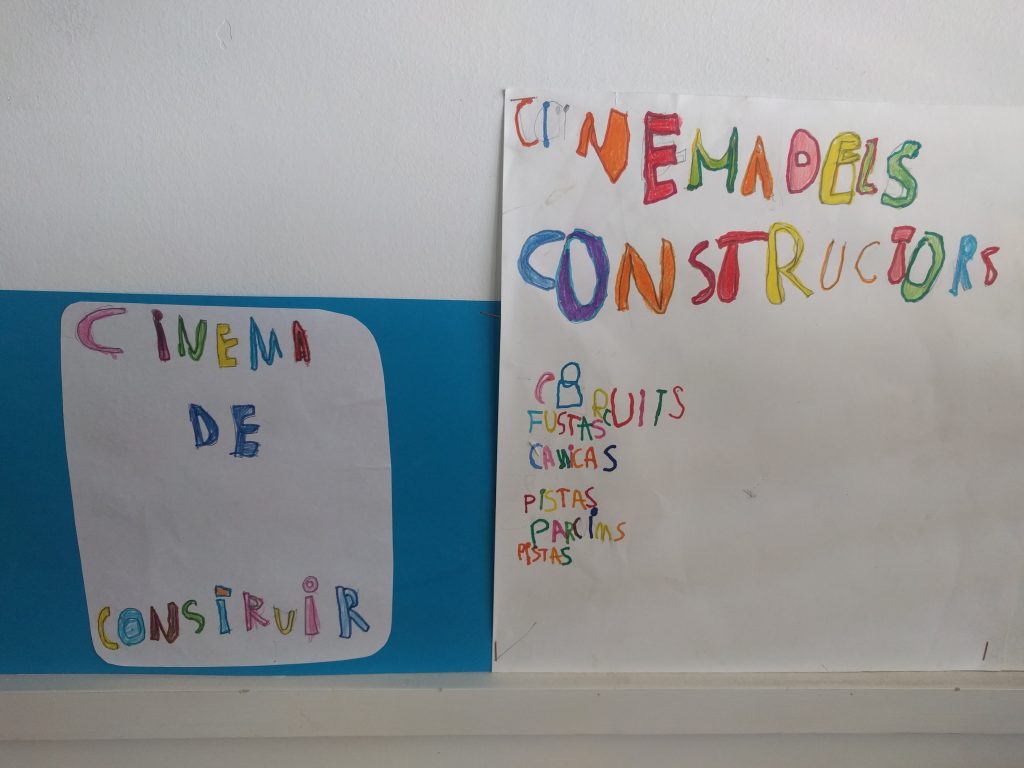 CINEMA
DE
CONSTRUIR
CINEMADELS
CONSTRUCTORS
CIRCUITS
FUSTAS
CANICAS
PISTAS
PARCIMS
PISTAS